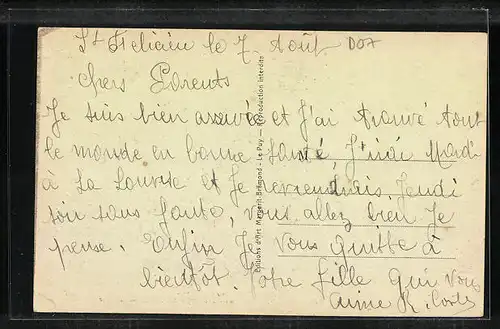 St Félicien le 7 Août
Chers Parents
Je suis bien arrivée et J'ai trouvé tout
le monde en bonne santé, J'irai Mardi
à La Louvesc et Je reviendrais Jeudi
soir sans faute, vous allez bien Je
pense. Enfin Je Vous quitte à
bientôt. Votre fille qui vous
aime R.
Editions d'Art Margerit-Brémond - Le Puy — Reproduction interdite